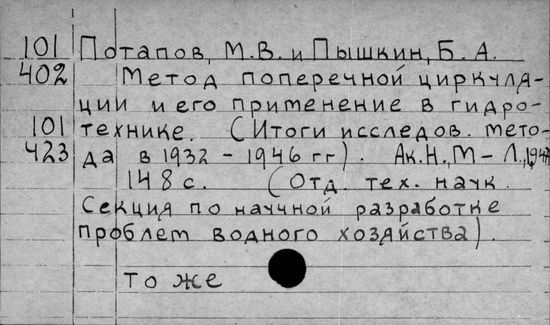 101 Потапов, М.В. и Пышкин, Б. А.
402 Метод поперечной циркуля-
ции и его применение в гидро-
101 технике. (Итоги исследов. мето-
423 да в 1932 - 1946 гг). Ак.Н., М-Л., 1947
148 с. (Отд. тех. наук.
Секция по научной разработке
проблем водного хозяйства).
то же